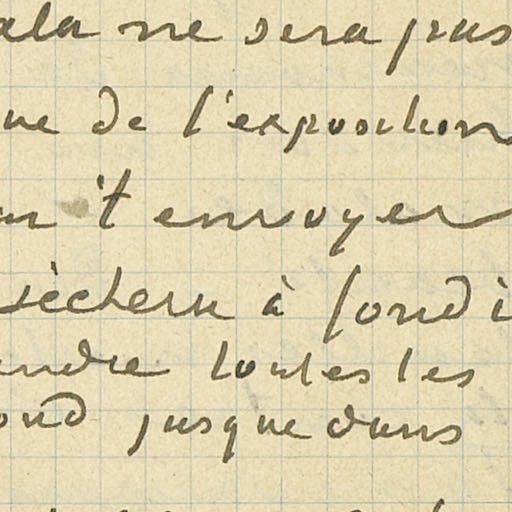 ala ne sera pas
ue de l'exposition
t envoyer
sèchera à fond
endre toutes les
ond jusque dans